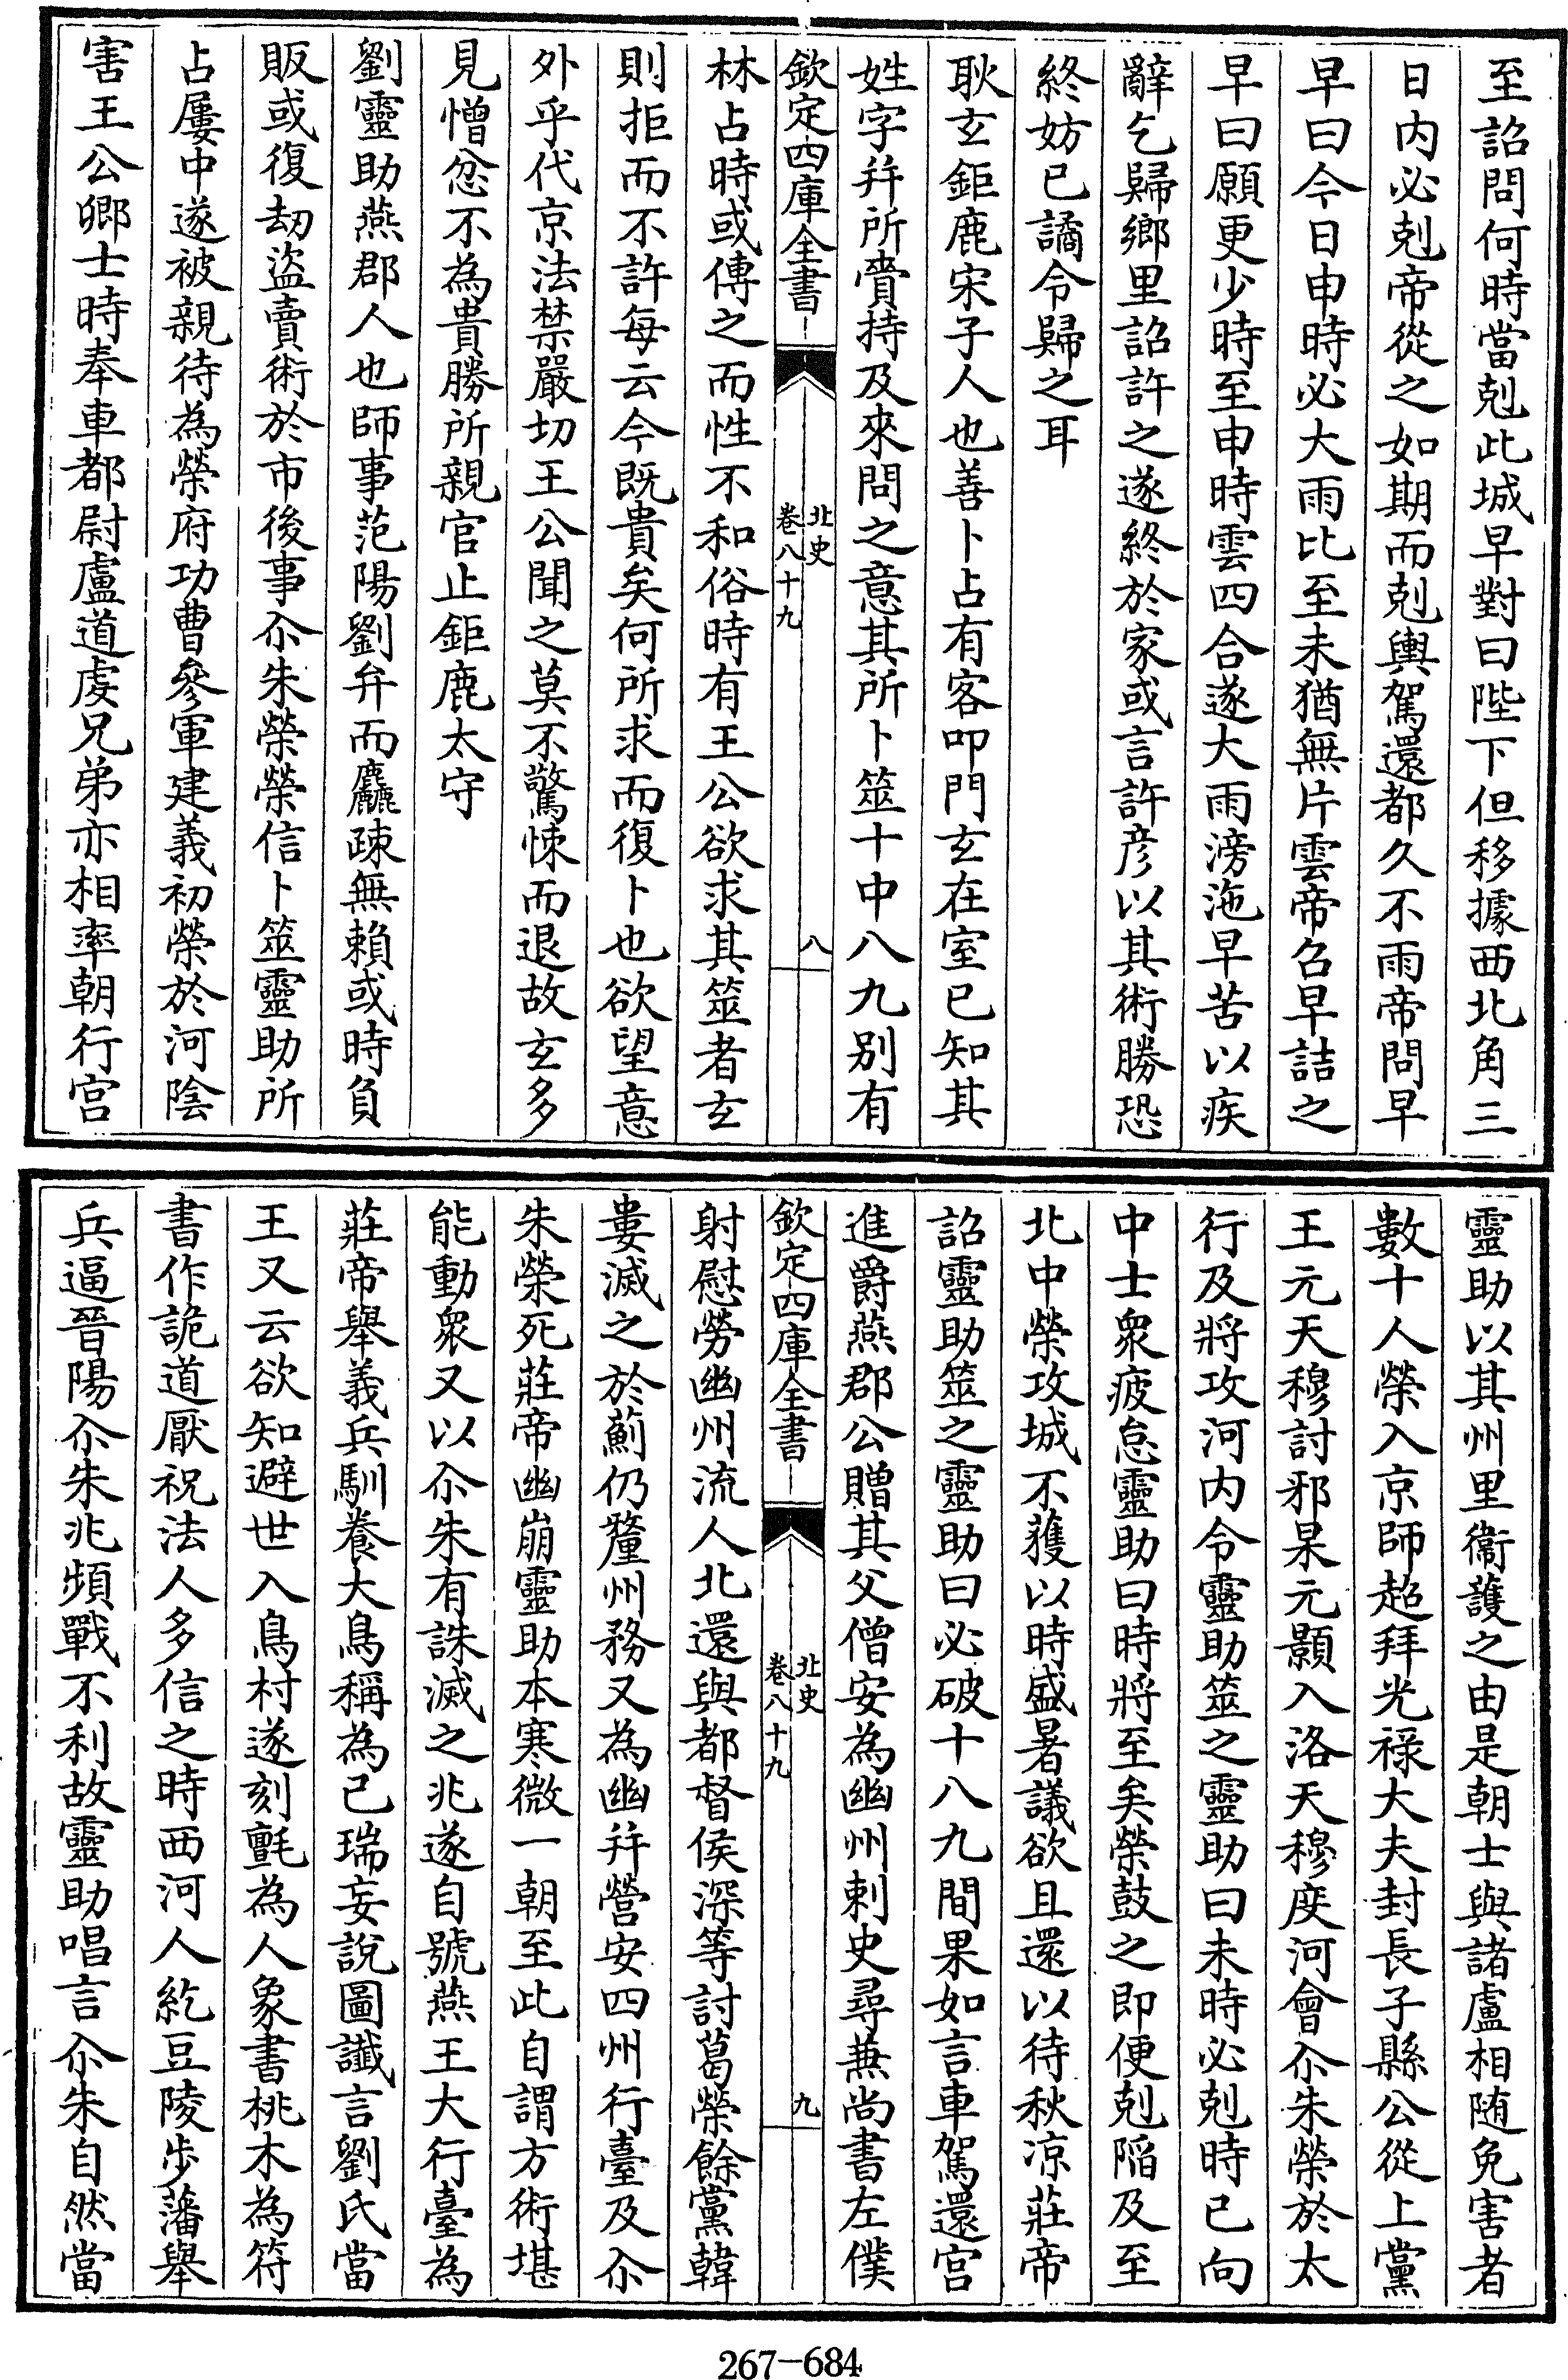 至詔問何時當剋此城早對曰陛下但移據西北角三
日内必剋帝從之如期而剋輿駕還都久不雨帝問早
早曰今日申時必大雨比至未猶無片雲帝召早詰之
早曰願更少時至申時雲四合遂大雨滂沲早苦以疾
辭乞歸鄉里詔許之遂終於家或言許彦以其術勝恐
終妨已譎令歸之耳
耿玄鉅鹿宋子人也善卜占有客叩門玄在室已知其
姓字并所賫持及來問之意其所卜筮十中八九别有
欽定四庫全書
北史
卷八十九
八
林占時或傳之而性不和俗時有王公欲求其筮者玄
則拒而不許每云今既貴矣何所求而復卜也欲望意
外乎代京法禁嚴切王公聞之莫不驚悚而退故玄多
見憎忿不為貴勝所親官止鉅鹿太守
劉靈助燕郡人也師事范陽劉弁而麤疎無賴或時負
販或復刼盜賣術於市後事尒朱榮榮信卜筮靈助所
占屢中遂被親待為榮府功曹參軍建義初榮於河陰
害王公卿士時奉車都尉盧道虔兄弟亦相率朝行宫
靈助以其州里衞護之由是朝士與諸盧相随免害者
數十人榮入京師超拜光禄大夫封長子縣公從上黨
王元天穆討邪杲元顥入洛天穆度河會尒朱榮於太
行及將攻河内令靈助筮之靈助曰未時必剋時已向
中士衆疲怠靈助曰時將至矣榮鼓之即便剋䧟及至
北中榮攻城不獲以時盛暑議欲且還以待秋凉莊帝
詔靈助筮之靈助曰必破十八九間果如言車駕還宫
進爵燕郡公贈其父僧安為幽州刺史尋兼尚書左僕
欽定四庫全書
北史
卷八十九
九
射慰勞幽州流人北還與都督侯深等討葛榮餘黨韓
婁滅之於薊仍釐州務又為幽并營安四州行臺及尒
朱榮死莊帝幽崩靈助本寒微一朝至此自謂方術堪
能動衆又以尒朱有誅滅之兆遂自號燕王大行臺為
莊帝舉義兵馴養大鳥稱為已瑞妄說圖讖言劉氏當
王又云欲知避世入鳥村遂刻氈為人象書桃木為符
書作詭道厭祝法人多信之時西河人紇豆陵步藩舉
兵逼晉陽尒朱兆頻戰不利故靈助唱言尒朱自然當
267-684